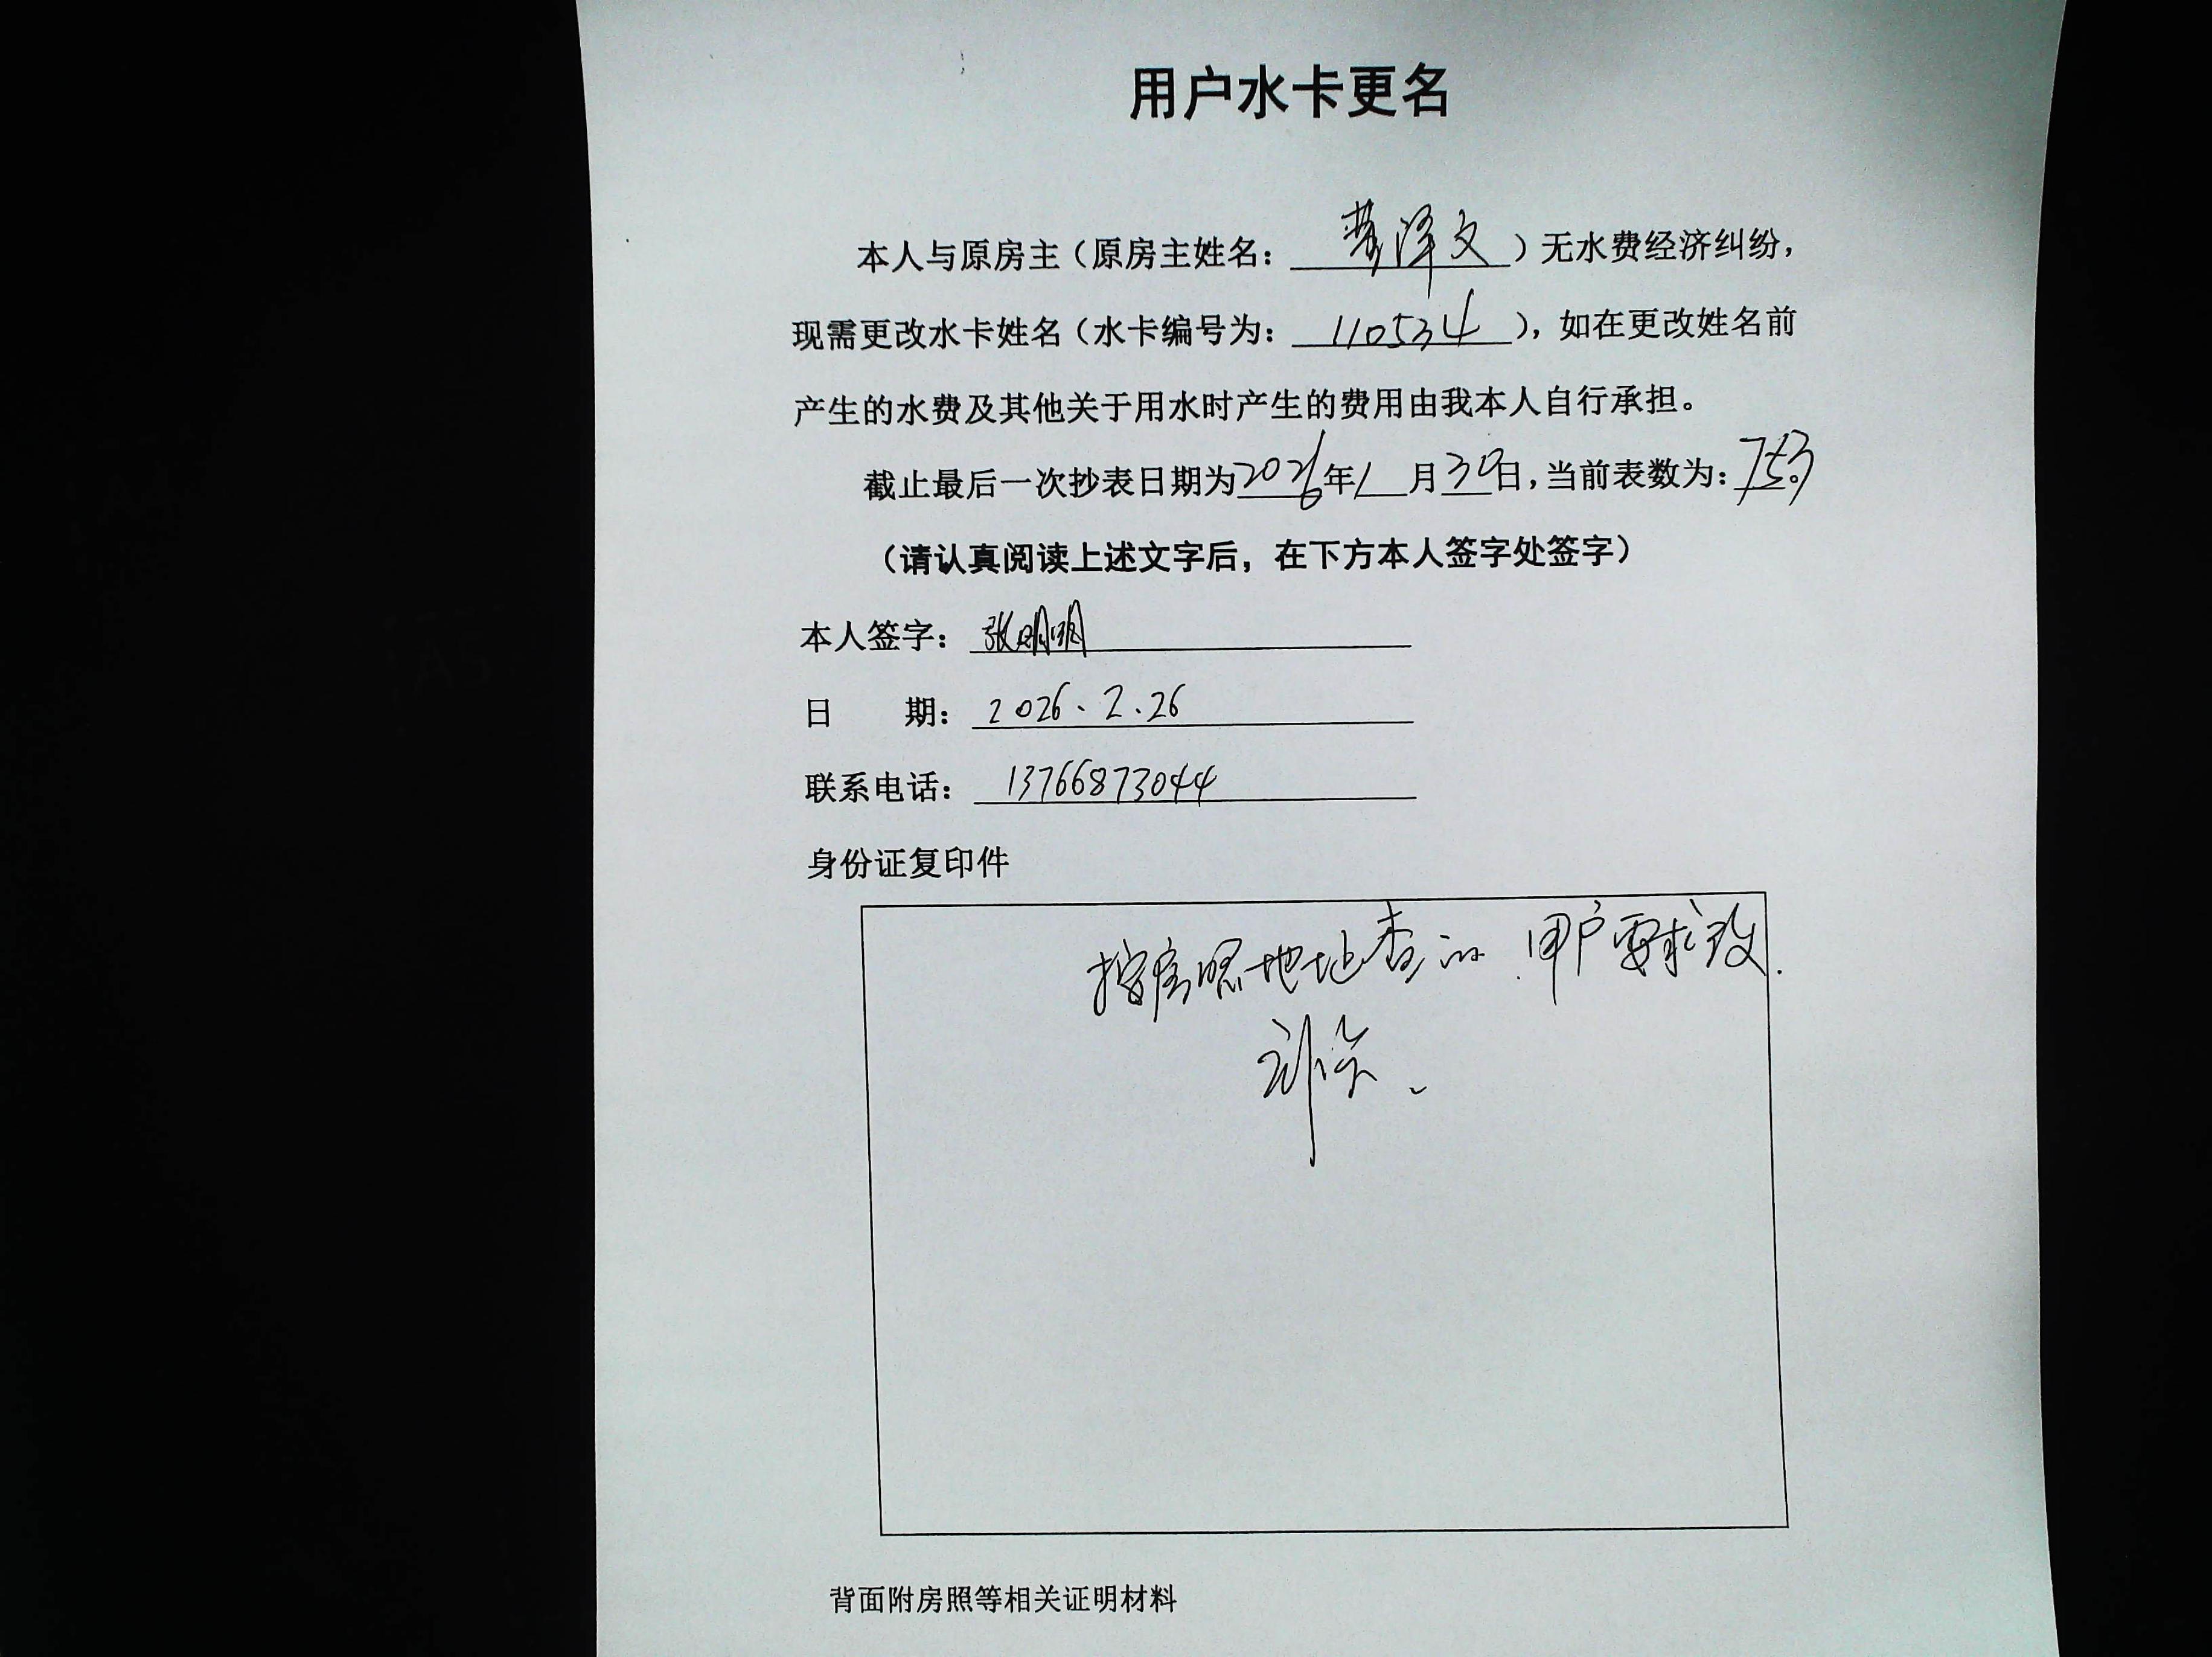 用户水卡更名
本人与原房主（原房主姓名：泽文）无水费经济纠纷，
现需更改水卡姓名（水卡编号为：110534），如在更改姓名前
产生的水费及其他关于用水时产生的费用由我本人自行承担。
截止最后一次抄表日期为2026年1月30日，当前表数为：753。
（请认真阅读上述文字后，在下方本人签字处签字）
本人签字：张明明
日 期：2026.2.26
联系电话：13766873044
身份证复印件
按房照地址查的.用户要求改.
背面附房照等相关证明材料